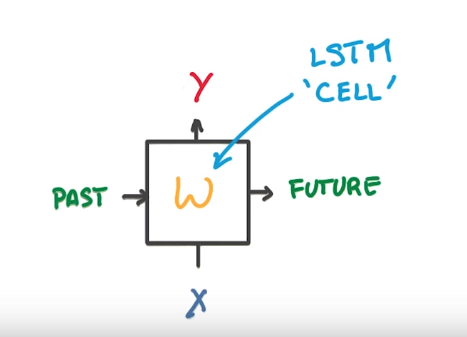 LSTM
'CELL'
Y
PAST
W
FUTURE
X